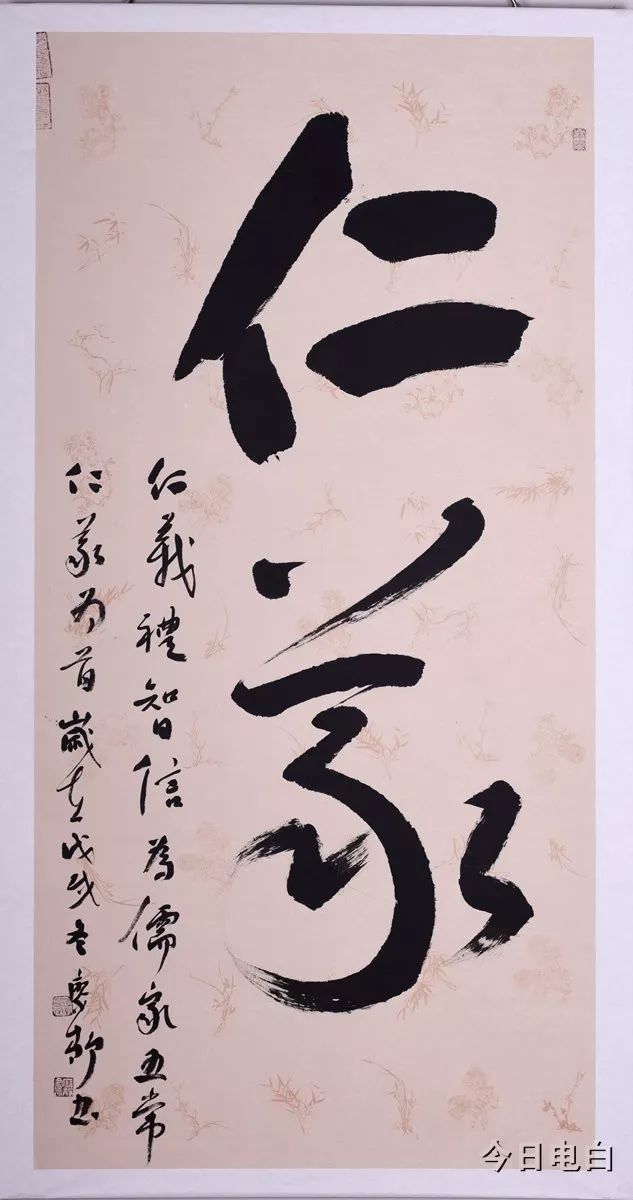 仁義
仁義禮智信為儒家五常
仁義为首歲在戊戌冬
书
今日电白